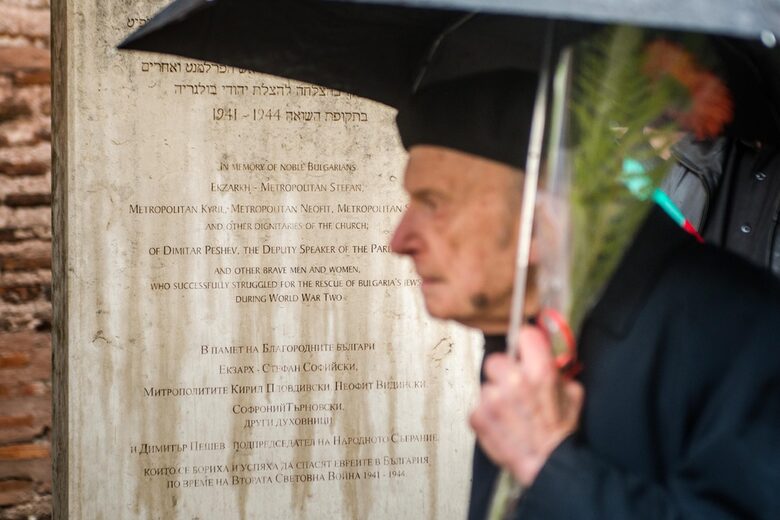 הפרלמנט ואחרים
בהצלחה להצלת יהודי בולגריה
בתקופת השואה
1941 - 1944
In memory of noble Bulgarians
Ekzarkh - Metropolitan Stefan,
Metropolitan Kyril, Metropolitan Neofit, Metropolitan
and other dignitaries of the church;
of Dimitar Peshev, the Deputy Speaker of the
and other brave men and women,
who successfully struggled for the rescue of Bulgaria's Jews
during World War Two
В памет на Благородните българи
Екзарх - Стефан Софийски,
Митрополитите Кирил Пловдивски, Неофит Видински,
Софроний Търновски,
други духовници
и Димитър Пешев подпредседател на Народното Събрание,
които се бориха и успяха да спасят евреите в България
по време на Втората Световна Война 1941 - 1944.